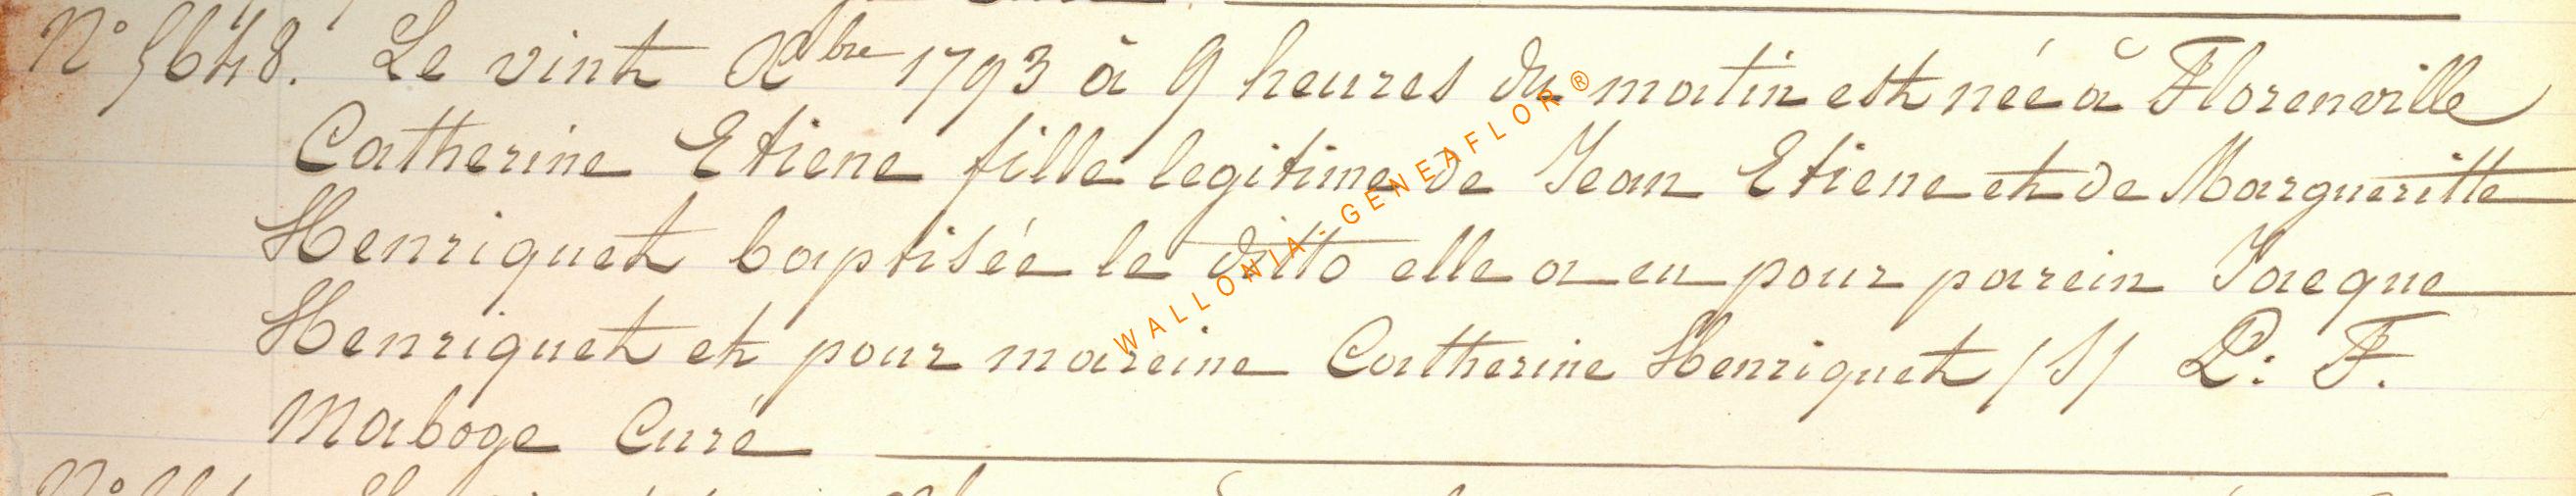 N° 5648. Le vint Xbre 1793 à 9 heures du matin est née à Florenville
Catherine Etiene fille legitime de Jean Etiene et de Margueritte
Henriquet baptisée le ditto elle a eu pour parein Jacque
Henriquet et pour mareine Catherine Henriquet /S/ P: F.
Maboge Curé
WALLONIA-GENEAFLOR®